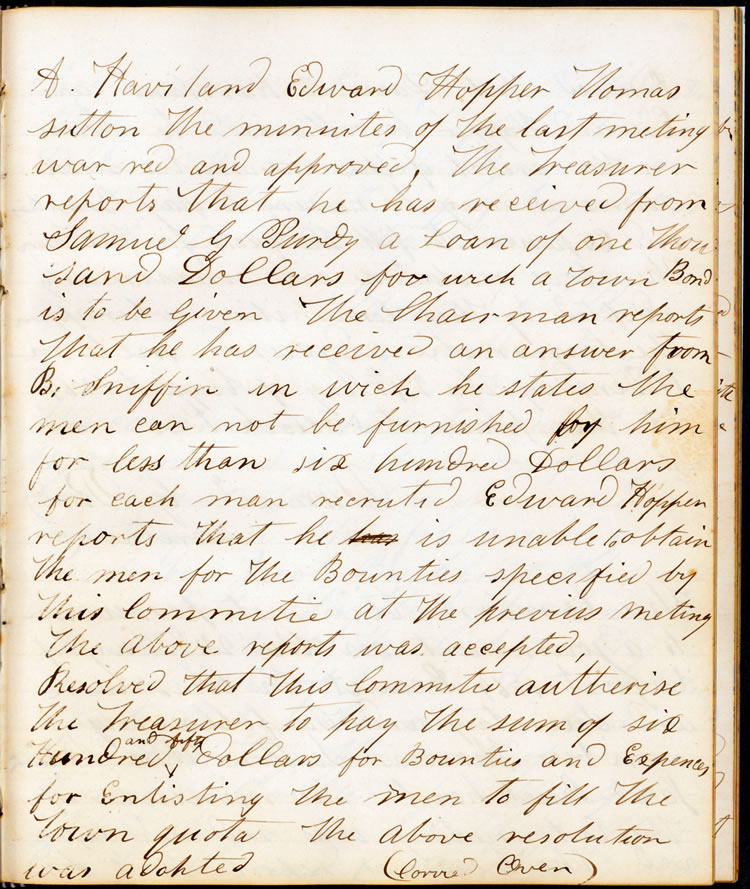 A. Haviland Edward Hopper Thomas
sutton The minnites of The last meting
war red and approved, The Treasurer
reports that he has received from
Samuel G Purdy a Loan of one thou
sand Dollars for wich a Town Bond
is to be Given The Chairman reports
That he has received an answer from
B. Sniffin in wich he states the
men can not be furnished by him
for less than six hundred Dollars
for each man recruted Edward Hopper
reports that he has is unable to obtain
the men for the Bounties specified by
this Committie at the previus meting
The above reports was accepted,
Resolved that this Committie autherise
the Treasurer to pay The sum of six
Hundred and fifty Dollars for Bounties and Expences
for Enlisting the men to fill The
Town quota The above resolution
was adopted (Carried Over)